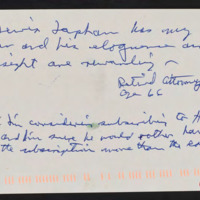 Lapham has my
and his eloquence an
sight are rewarding ~
Retired Attorney
age 66
considering subscribing to H
and I'm sure he would rather hav
the subscription more than the